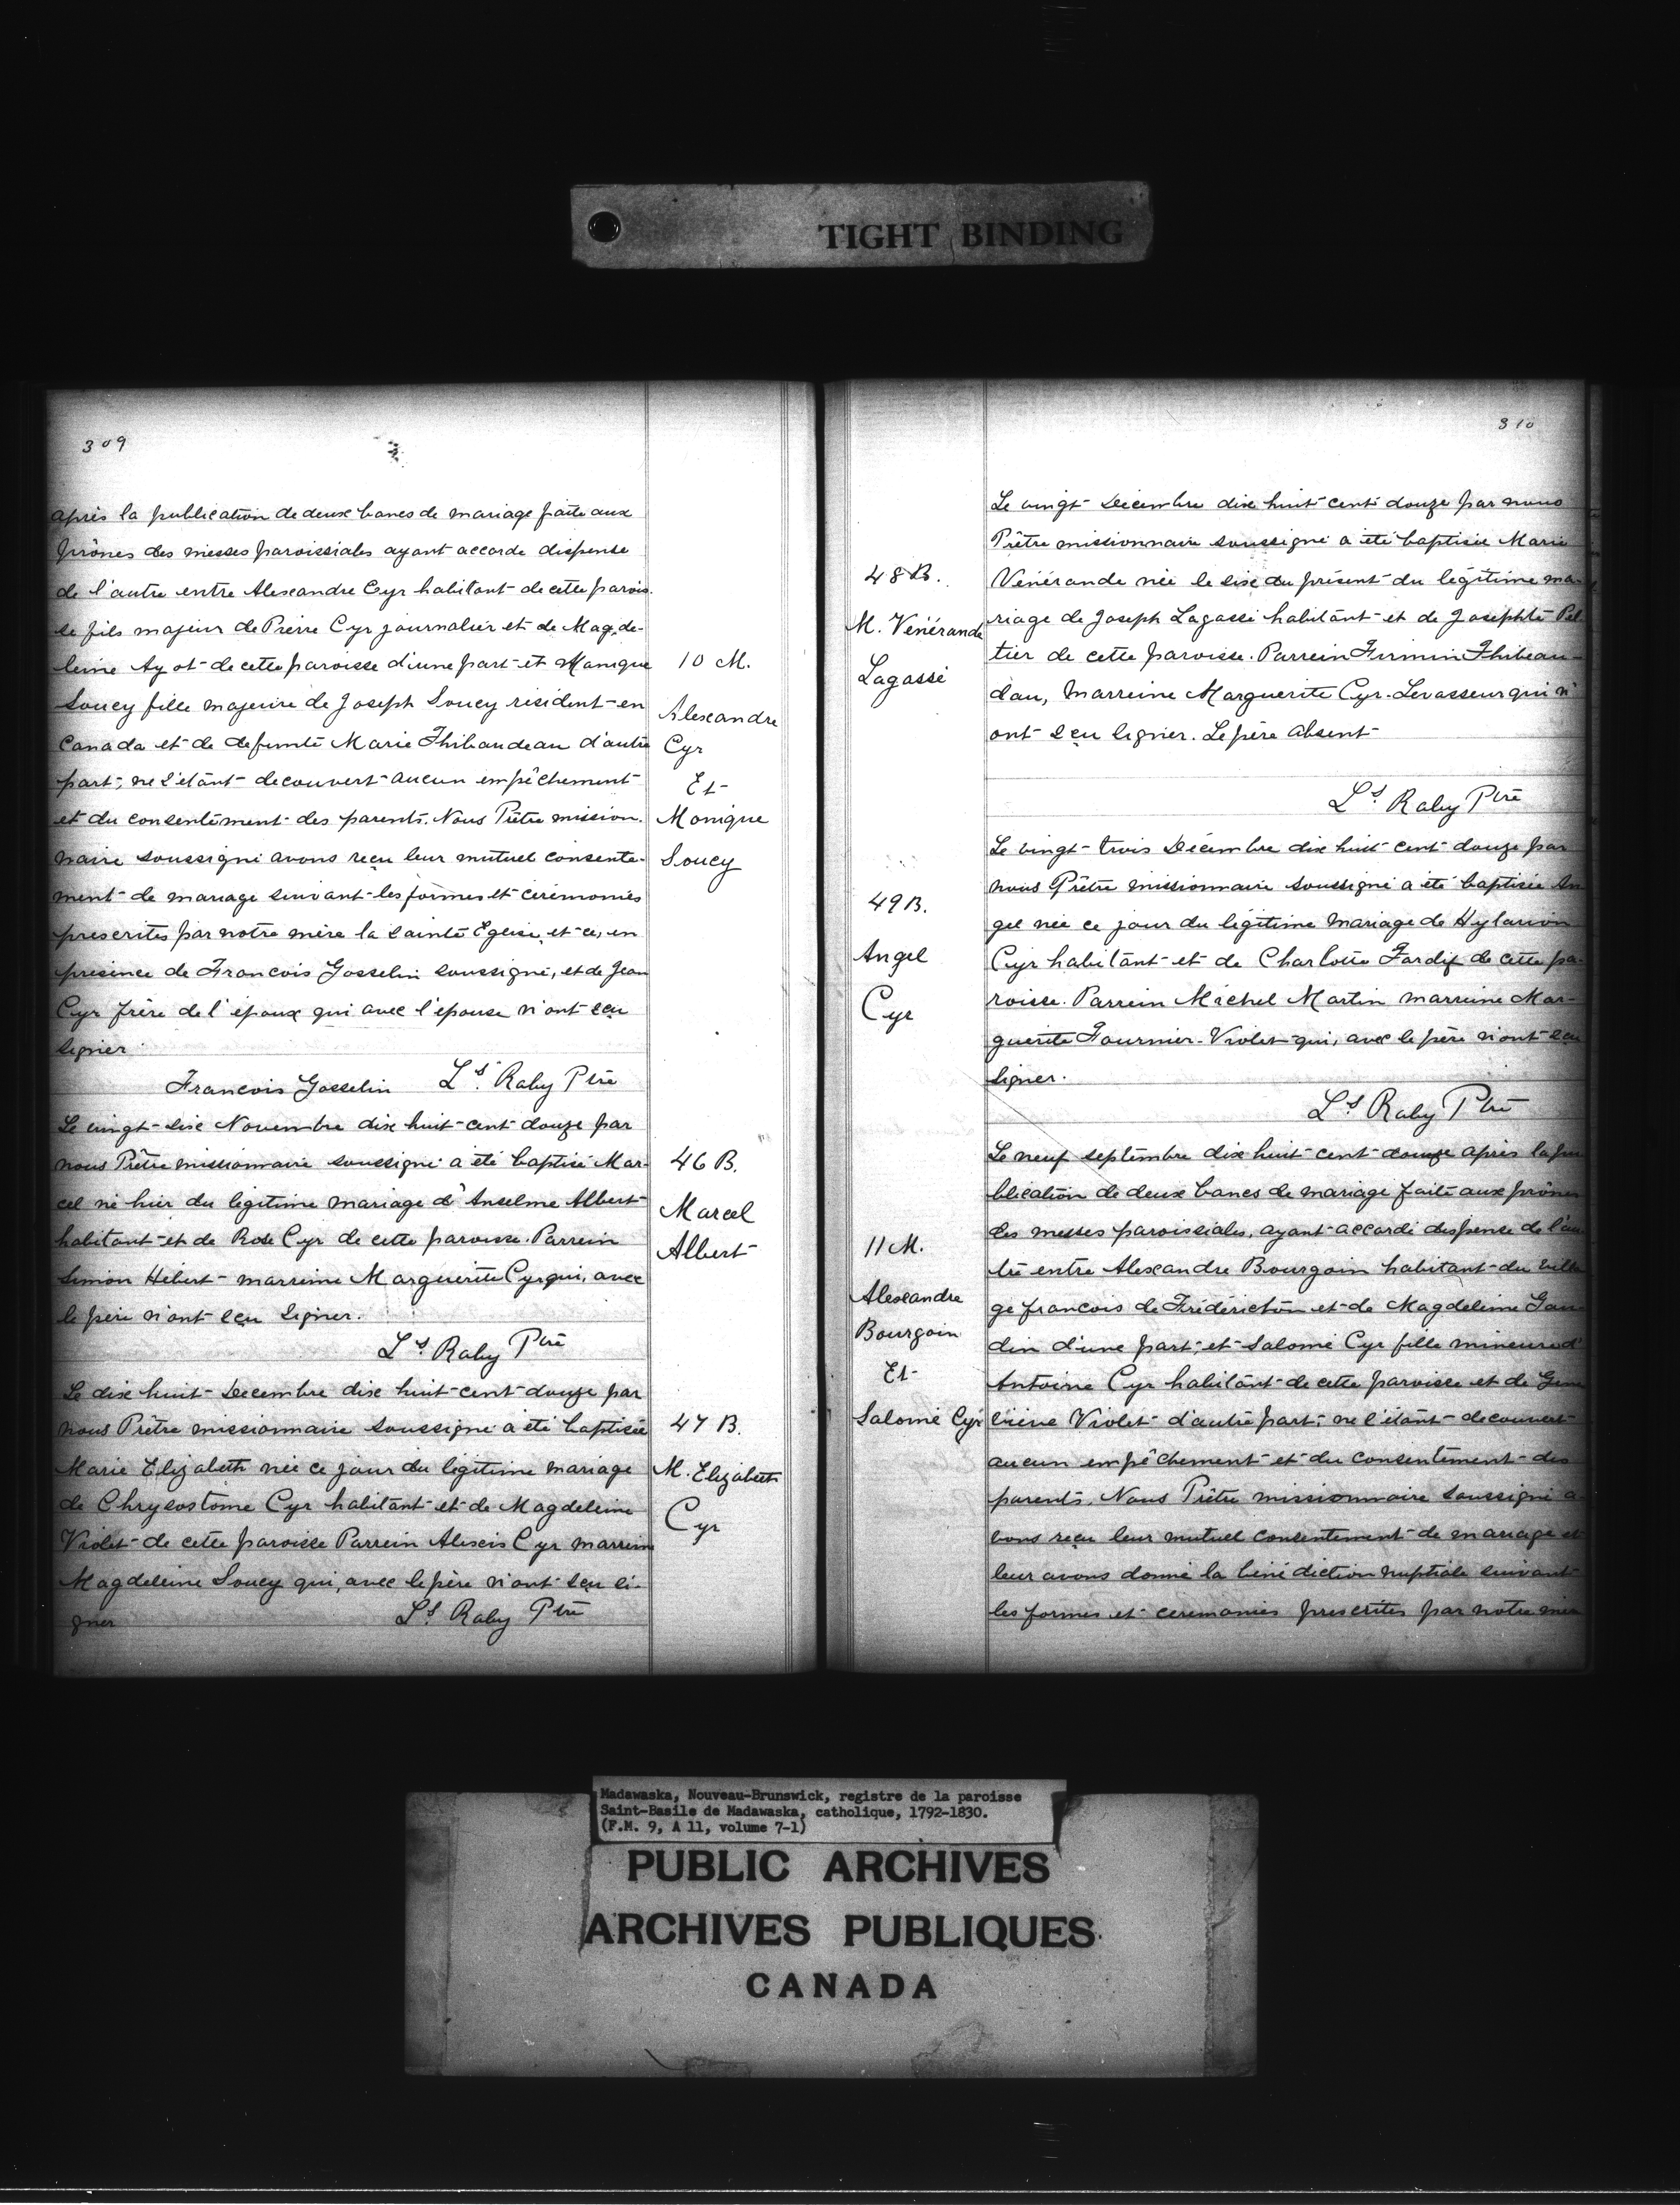 TIGHT BINDING
309
après la publication de deux bancs de mariage faite aux
prônes des messes paroissiales ayant accordé dispense
de l'autre entre Alexandre Cyr habitant de cette parois-
se fils majeur de Pierre Cyr journalier et de Magde-
leine Ayot de cette paroisse d'une part et Monique
Soucy fille majeure de Joseph Soucy résident en
Canada et de defunte Marie Thibaudeau d'autre
part; ne s'étant decouvert aucun empêchement
et du consentement des parents. Nous Prêtre mission-
naire soussigné avons reçu leur mutuel consente-
ment de mariage suivant les formes et cérémonies
prescrites par notre mère la sainte Eglise, et ce, en
présence de Francois Gosselin soussigné, et de Jean
Cyr frère de l'époux qui avec l'épouse n'ont sçu
signer
Francois Gosselin Ls. Raby Ptre
10 M.
Alexandre
Cyr
Et
Monique
Soucy
Le vingt-six Novembre dix huit-cent douze par
nous Prêtre missionnaire soussigné a été baptisé Mar-
cel né hier du légitime mariage d'Anselme Albert
habitant et de Rose Cyr de cette paroisse. Parrein
Simon Hébert marreine Marguerite Cyr qui, avec
le père n'ont sçu signer.
Ls. Raby Ptre
46 B.
Marcel
Albert
Le dix huit Decembre dix huit-cent-douze par
nous Prêtre missionnaire soussigné a été baptisée
Marie Elizabeth née ce jour du légitime mariage
de Chrysostome Cyr habitant et de Magdeleine
Violet de cette paroisse Parrein Alexis Cyr marreine
Magdeleine Soucy qui, avec le père n'ont sçu si-
gner Ls. Raby Ptre
47 B.
M. Elizabeth
Cyr
310
Le vingt Decembre dix huit cent douze par nous
Prêtre missionnaire soussigné a été baptisée Marie
Vénérande née le six du présent du légitime ma-
riage de Joseph Lagassé habitant et de Josephte Pel
tier de cette paroisse. Parrein Firmin Thibeau-
dau, Marreine Marguerite Cyr-Levasseur qui n'
ont sçu signer. Le père absent
Ls. Raby Ptre
48 B.
M. Vénérande
Lagassé
Le vingt-trois Décembre dix huit cent douze par
nous Prêtre missionnaire soussigné a été baptisée An
gel née ce jour du légitime mariage de Hylarion
Cyr habitant et de Charlotte Tardif de cette pa-
roisse. Parrein Michel Martin marreine Mar-
guerite Fournier-Violet qui, avec le père n'ont sçu
signer.
Ls Raby Ptre
49 B.
Angel
Cyr
Le neuf septembre dix huit-cent-douze après la pu
blication de deux bancs de mariage faite aux prônes
des messes paroissiales, ayant accordé dispense de l'au
tre entre Alexandre Bourgoin habitant du villa
ge francois de Frédéricton et de Magdeleine Gau
din d'une part; et Salomé Cyr fille mineure d'
Antoine Cyr habitant de cette paroisse et de Gene
viève Violet d'autre part; ne s'étant decouvert
aucun empêchement et du consentement des
parents. Nous Prêtre missionnaire soussigné a
vons reçu leur mutuel consentement de mariage et
leur avons donné la bénédiction nuptiale suivant
les formes et ceremonies prescrites par notre mère
11 M.
Alexandre
Bourgoin
Et
Salomé Cyr
Madawaska, Nouveau-Brunswick, registre de la paroisse
Saint-Basile de Madawaska, catholique, 1792-1830.
(F.M. 9, A 11, volume 7-1)
PUBLIC ARCHIVES
ARCHIVES PUBLIQUES
CANADA